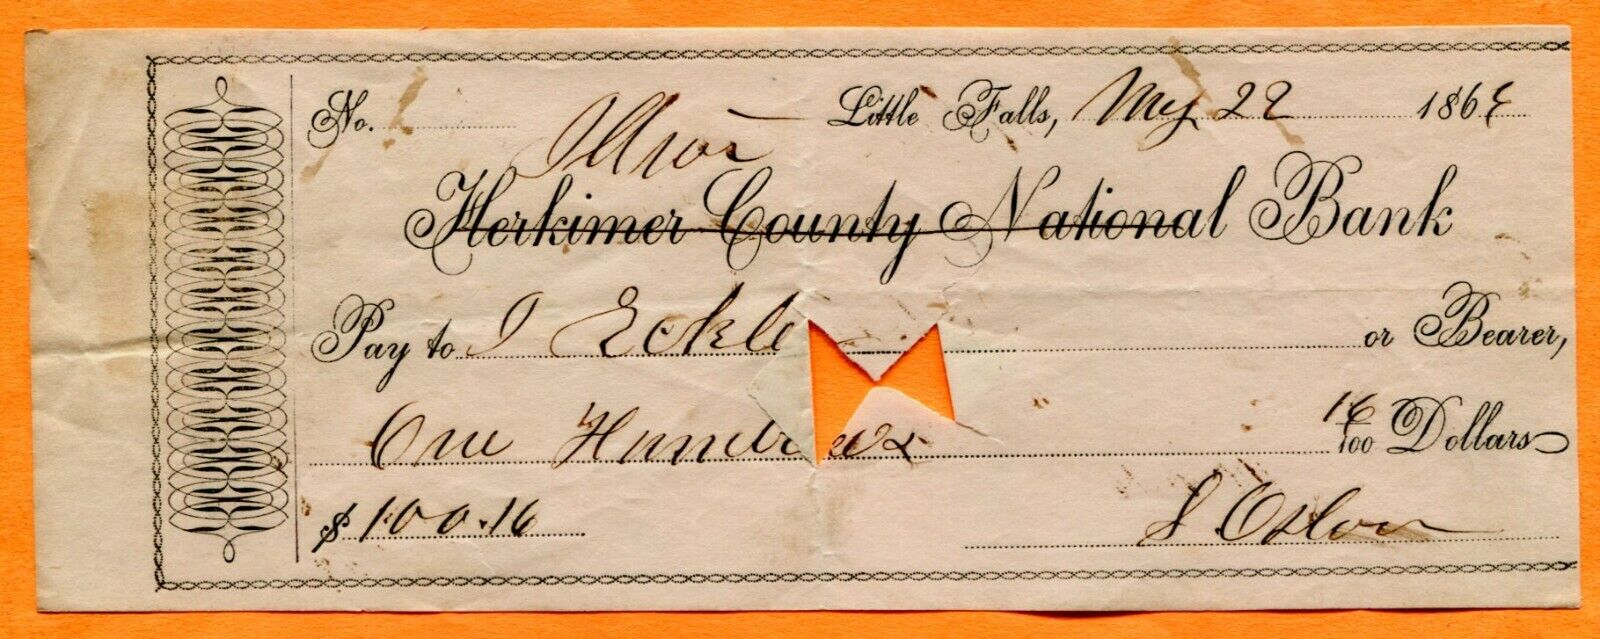 No. Little Falls, May 22 1869
Ilion
Herkimer County National Bank
Pay to J Eckle or Bearer,
One Hundred 16/100 Dollars
$100.16